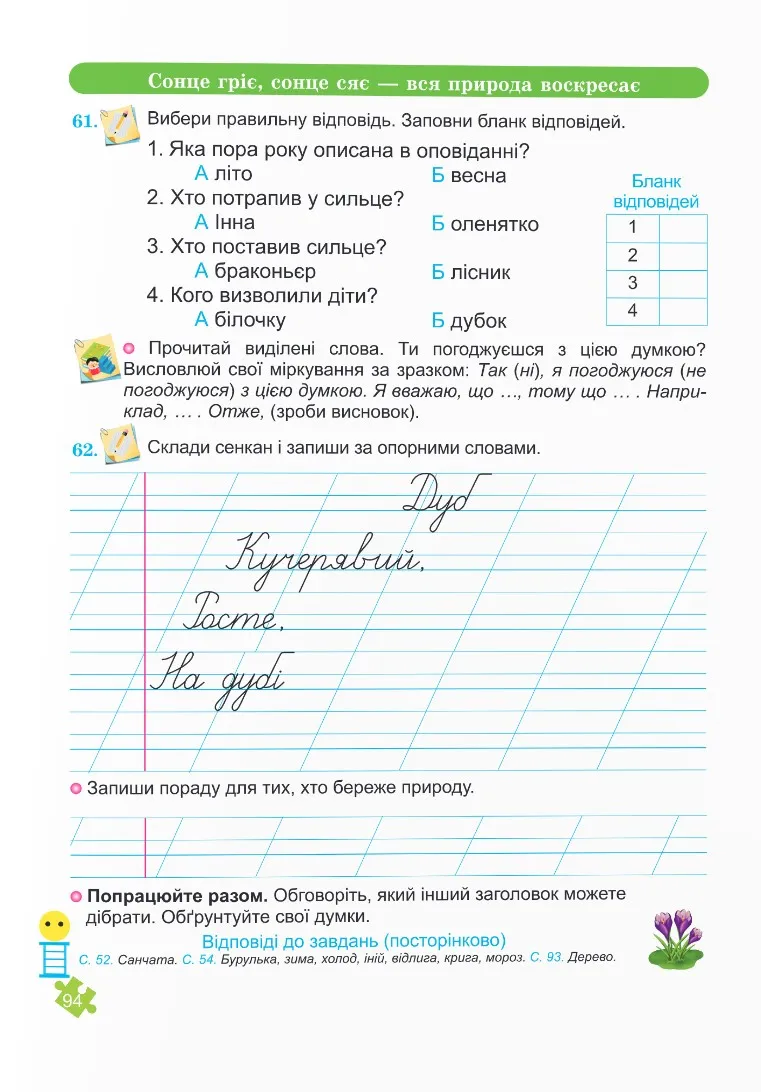 Сонце гріє, сонце сяє — вся природа воскресає
61. Вибери правильну відповідь. Заповни бланк відповідей.
1. Яка пора року описана в оповіданні?
А літо Б весна
2. Хто потрапив у сильце?
А Інна Б оленятко
3. Хто поставив сильце?
А браконьєр Б лісник
4. Кого визволили діти?
А білочку Б дубок
Бланк
відповідей
1
2
3
4
Прочитай виділені слова. Ти погоджуєшся з цією думкою?
Висловлюй свої міркування за зразком: Так (ні), я погоджуюся (не
погоджуюся) з цією думкою. Я вважаю, що ..., тому що ... . Напри-
клад, ... . Отже, (зроби висновок).
62. Склади сенкан і запиши за опорними словами.
Дуб
Кучерявий,
Росте,
На дубі
Запиши пораду для тих, хто береже природу.
Попрацюйте разом. Обговоріть, який інший заголовок можете
дібрати. Обґрунтуйте свої думки.
Відповіді до завдань (посторінково)
С. 52. Санчата. С. 54. Бурулька, зима, холод, іній, відлига, крига, мороз. С. 93. Дерево.
94